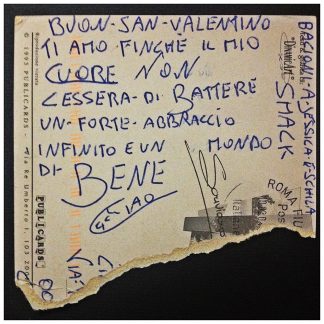 BUON-SAN-VALENTINO
TI AMO FINCHÈ IL MIO
CUORE NON
CESSERA-DI BATTERE
UN-FORTE-ABBRACCIO
INFINITO E UN MONDO
DI-BENE
CIAO
BACIONI-A-JESSICA-E-SCHILA
SMACK
ROMA FIU
POS
© 1995 PUBLICARDS - Via Re Umberto I, 103
PUBLICARDS
Riproduzione vietata